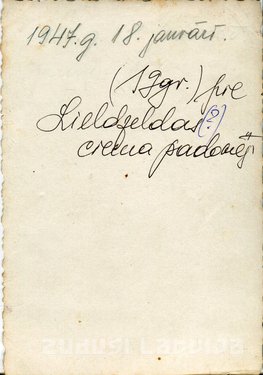 1947.g. 18. janvārī.
(19gr.) pie
Lieldzeldas(?)
ciema padomēj
zudusi Latvija